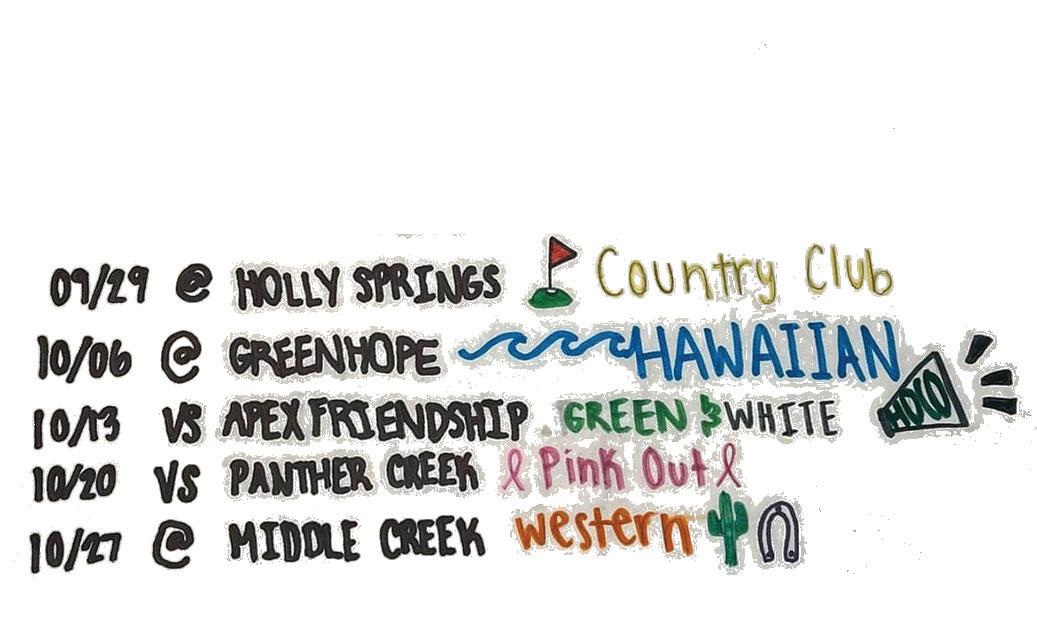 09/29 @ HOLLY SPRINGS Country Club
10/06 @ GREENHOPE HAWAIIAN
10/13 VS APEX FRIENDSHIP GREEN & WHITE HOCO
10/20 VS PANTHER CREEK Pink Out
10/27 @ MIDDLE CREEK western